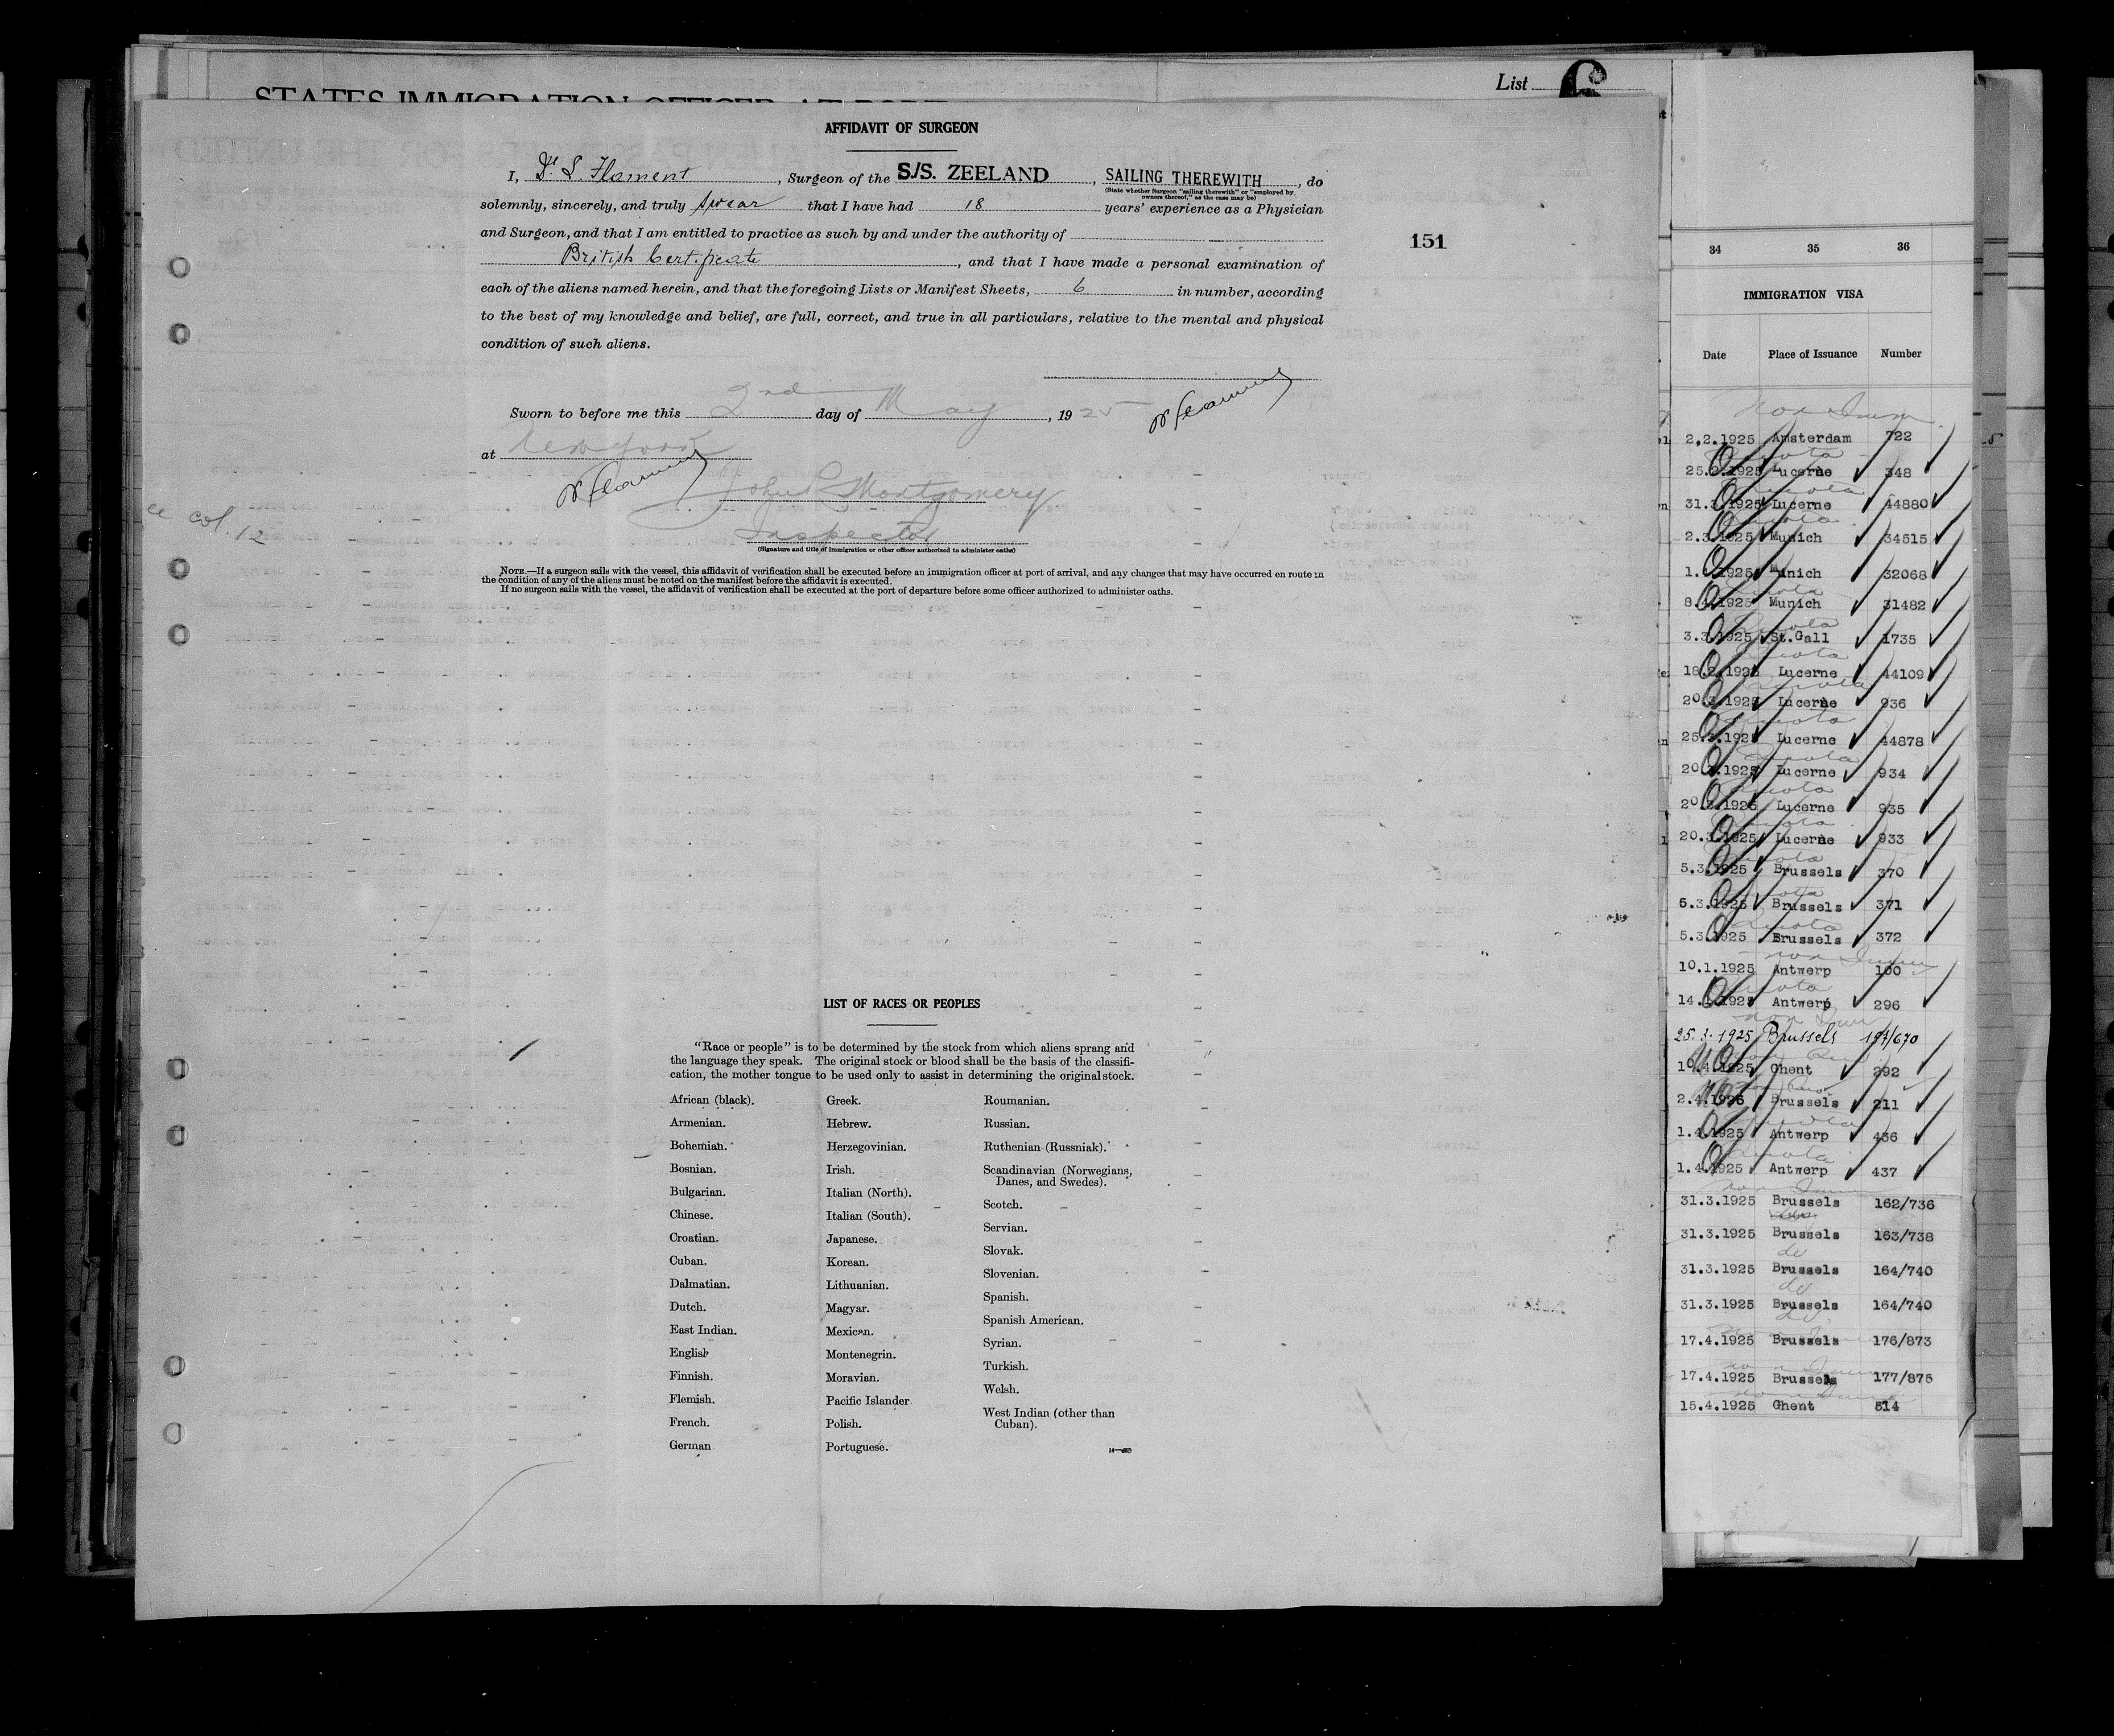 List
AFFIDAVIT OF SURGEON
I, Dr. L. Flament, Surgeon of the S/S. ZEELAND, SAILING THEREWITH, do
(State whether Surgeon "sailing therewith" or "employed by
owners thereof," as the case may be)
solemnly, sincerely, and truly swear that I have had 18 years' experience as a Physician
and Surgeon, and that I am entitled to practice as such by and under the authority of
British Certificate, and that I have made a personal examination of
each of the aliens named herein, and that the foregoing Lists or Manifest Sheets, 6 in number, according
to the best of my knowledge and belief, are full, correct, and true in all particulars, relative to the mental and physical
condition of such aliens.
151
Sworn to before me this 2nd day of May, 1925
at New York
John P. Montgomery
Inspector
(Signature and title of immigration or other officer authorized to administer oaths)
col. 12
NOTE.—If a surgeon sails with the vessel, this affidavit of verification shall be executed before an immigration officer at port of arrival, and any changes that may have occurred en route in
the condition of any of the aliens must be noted on the manifest before the affidavit is executed.
If no surgeon sails with the vessel, the affidavit of verification shall be executed at the port of departure before some officer authorized to administer oaths.
LIST OF RACES OR PEOPLES
"Race or people" is to be determined by the stock from which aliens sprang and
the language they speak. The original stock or blood shall be the basis of the classifi-
cation, the mother tongue to be used only to assist in determining the original stock.
African (black).
Armenian.
Bohemian.
Bosnian.
Bulgarian.
Chinese.
Croatian.
Cuban.
Dalmatian.
Dutch.
East Indian.
English
Finnish.
Flemish.
French.
German
Greek.
Hebrew.
Herzegovinian.
Irish.
Italian (North).
Italian (South).
Japanese.
Korean.
Lithuanian.
Magyar.
Mexican.
Montenegrin.
Moravian.
Pacific Islander
Polish.
Portuguese.
Roumanian.
Russian.
Ruthenian (Russniak).
Scandinavian (Norwegians,
Danes, and Swedes).
Scotch.
Servian.
Slovak.
Slovenian.
Spanish.
Spanish American.
Syrian.
Turkish.
Welsh.
West Indian (other than
Cuban).
34 35 36
IMMIGRATION VISA
Date Place of Issuance Number
non Imm
2.2.1925 Amsterdam 722
Quota
25.2.1925 Lucerne 348
Quota
31.3.1925 Lucerne 44880
Quota
2.3.1925 Munich 34515
1.4.1925 Munich 32068
Quota
8.4.1925 Munich 31482
Quota
3.3.1925 St.Gall 1735
Quota
18.2.1925 Lucerne 44109
Quota
20.3.1925 Lucerne 936
Quota
25.3.1925 Lucerne 44878
Quota
20.3.1925 Lucerne 934
Quota
20.3.1925 Lucerne 935
Quota
20.3.1925 Lucerne 933
Quota
5.3.1925 Brussels 370
Quota
5.3.1925 Brussels 371
Quota
5.3.1925 Brussels 372
non Imm
10.1.1925 Antwerp 100
Quota
14.1.1925 Antwerp 296
non Imm
25.3.1925 Brussels 194/670
10.4.1925 Ghent 292
2.4.1925 Brussels 211
Quota
1.4.1925 Antwerp 436
Quota
1.4.1925 Antwerp 437
non Imm
31.3.1925 Brussels 162/736
31.3.1925 Brussels 163/738
do
31.3.1925 Brussels 164/740
do
31.3.1925 Brussels 164/740
do
17.4.1925 Brussels 176/873
non Imm
17.4.1925 Brussels 177/875
non Imm
15.4.1925 Ghent 314